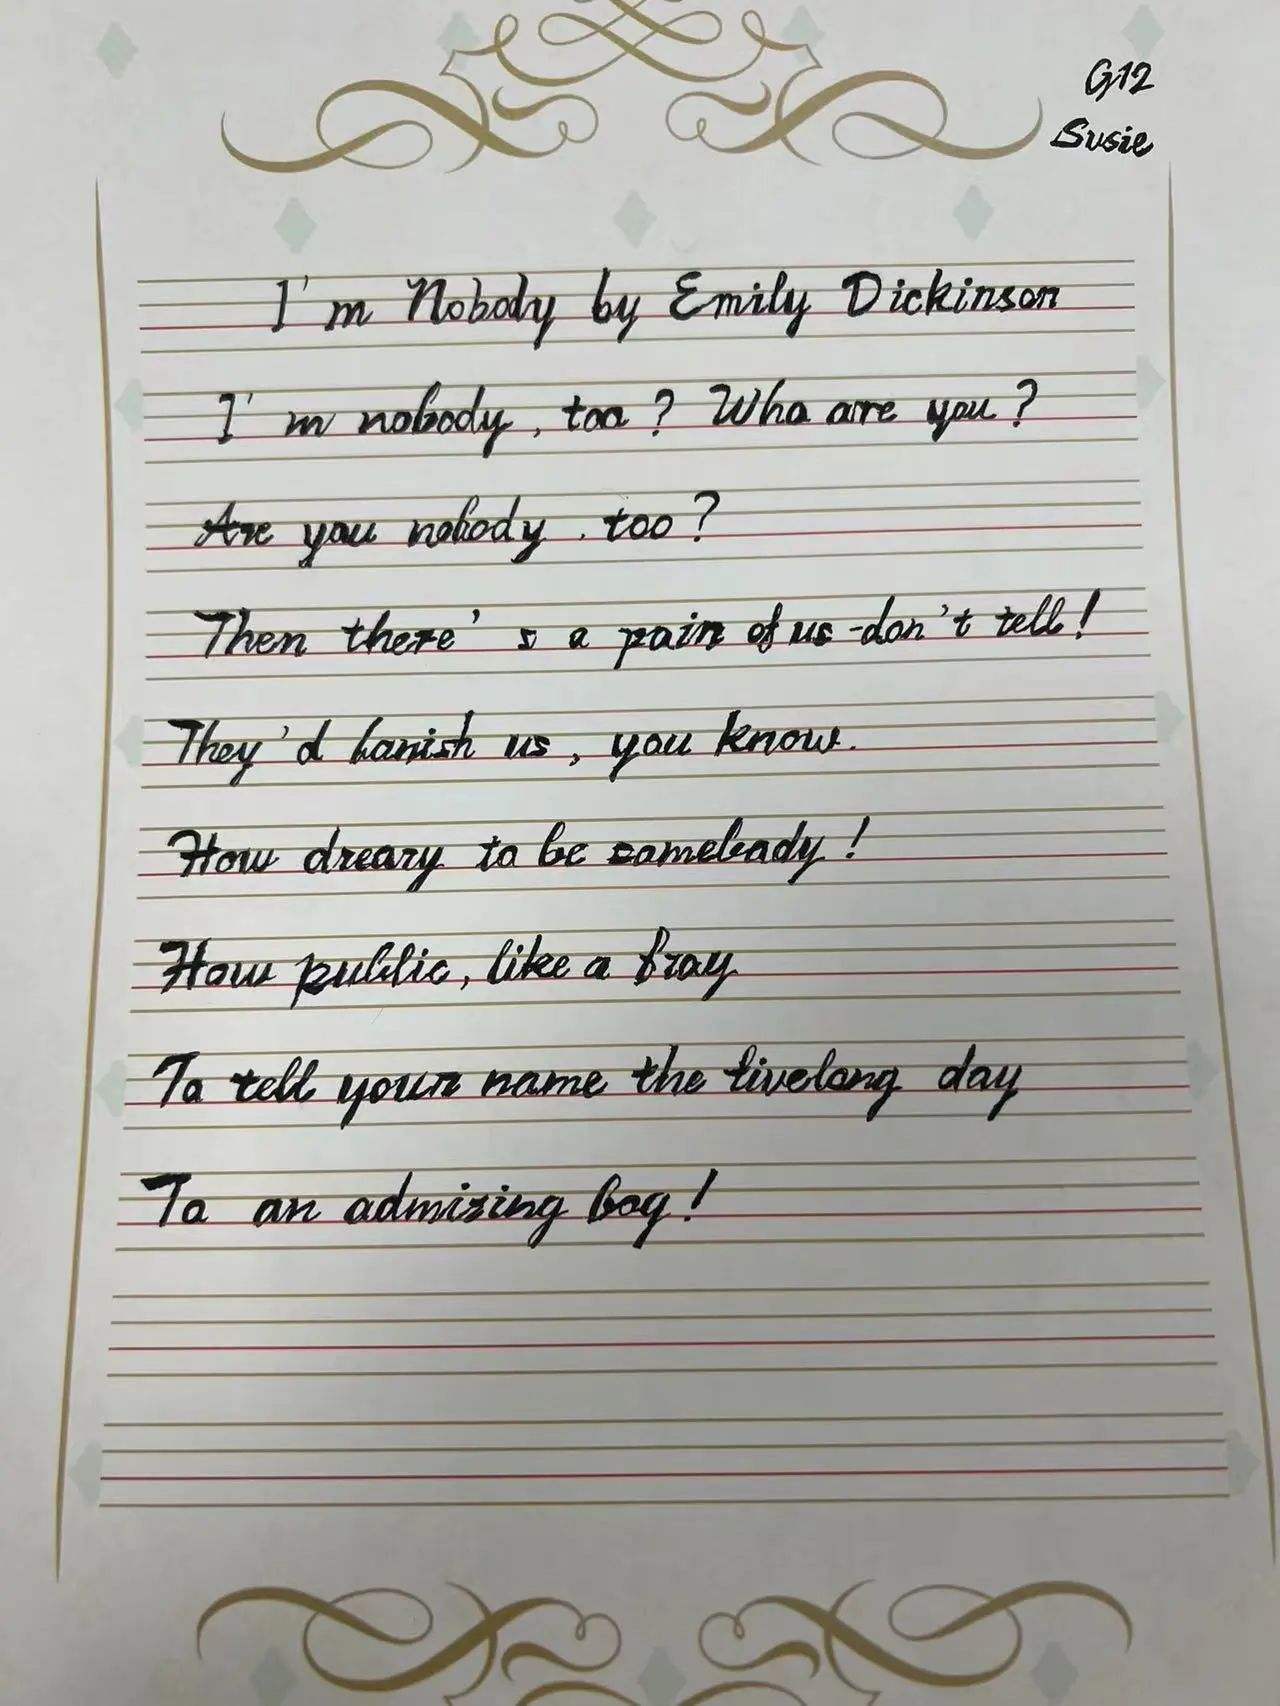 G12
Susie
I'm Nobody by Emily Dickinson
I'm nobody, too? Who are you?
Are you nobody, too?
Then there's a pair of us -don't tell!
They'd banish us, you know.
How dreary to be somebody!
How public, like a fray
To tell your name the livelong day
To an admiring bog!